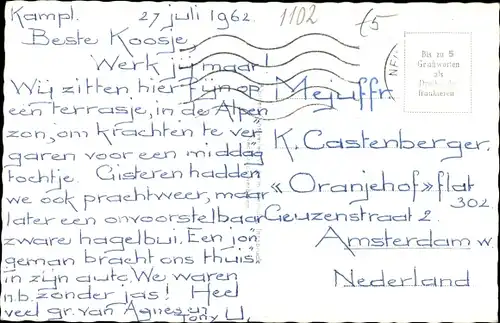 Kampl. 27 juli 1962.
1102
£5
Beste Koosje
Werk jij maar!
Wij zitten hier fijn op
een terrasje, in de Alpen
zon, om krachten te ver
garen voor een middag
tochtje. Gisteren hadden
we ook prachtweer, maar
later een onvoorstelbaar
zware hagelbui. Een jon
geman bracht ons thuis
in zijn auto. We waren
n.b. zonder jas! Heel
veel gr. van Agnes en
Tony U.
Bis zu 5
Grußworten
als
frankieren
Mejuffr.
K. Castenberger.
«Oranjehof» flat
302
Geuzenstraat 2.
Amsterdam w.
Nederland